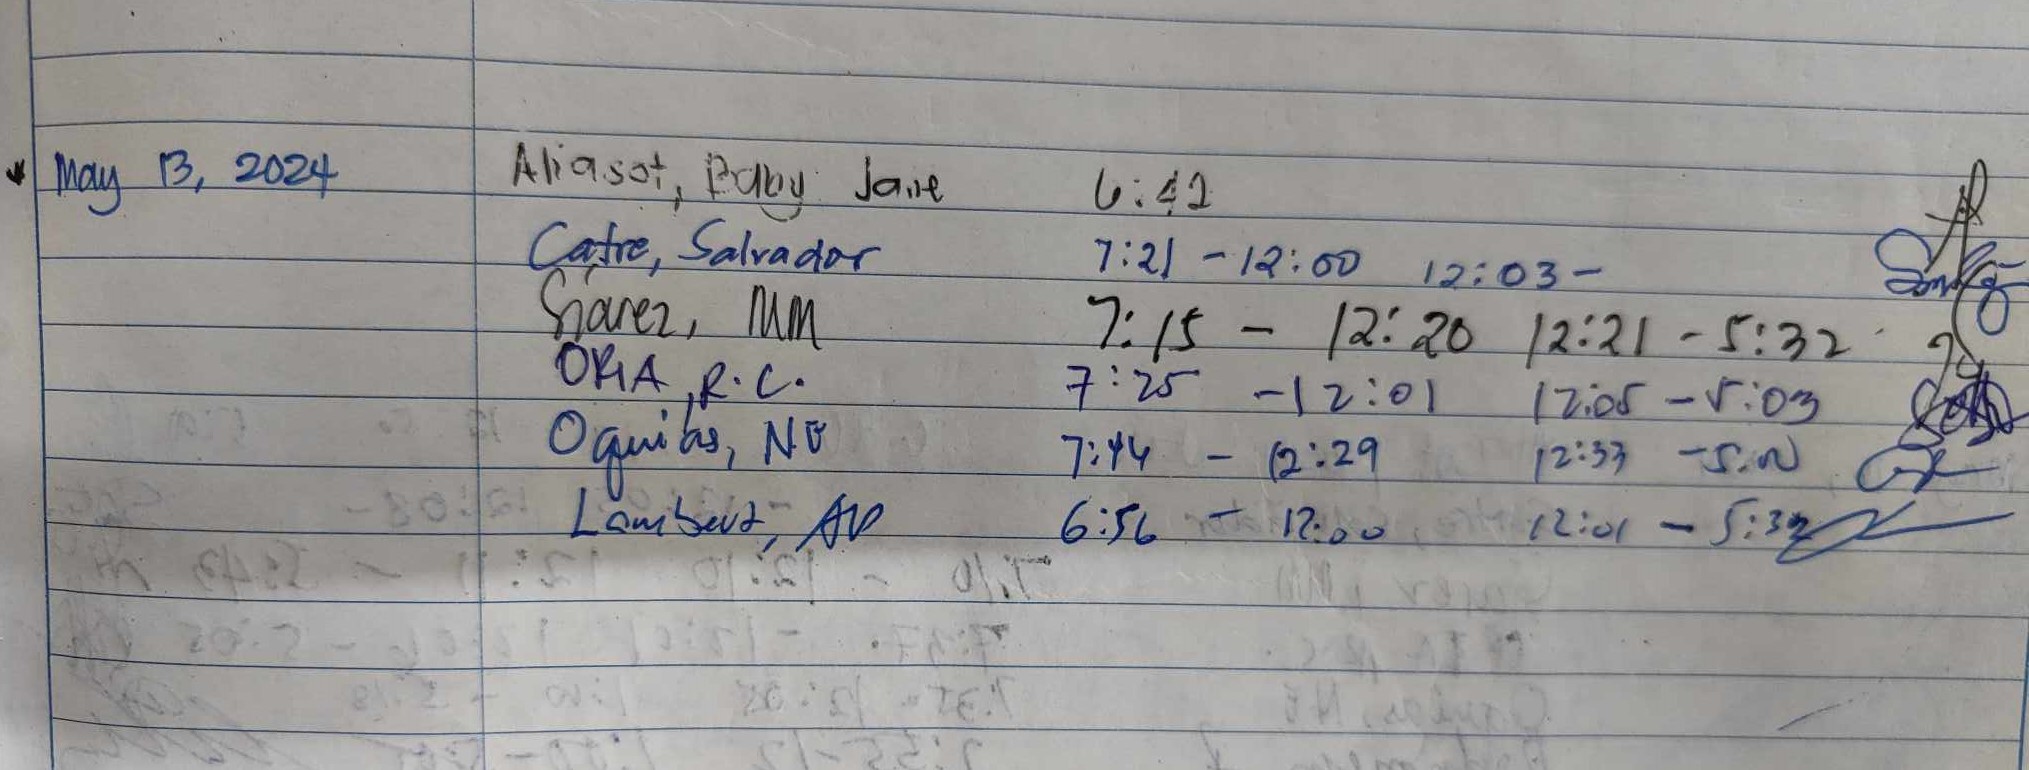 May 13, 2024 Aliasot, Baby Jane 6:42
Catre, Salvador 7:21 - 12:00 12:03 -
Suarez, MM 7:15 - 12:20 12:21 - 5:32
ORIA, R.C. 7:25 - 12:01 12:05 - 5:03
Oquias, NB 7:44 - 12:29 12:33 -
Lambert, AD 6:56 - 12:00 12:01 - 5:32